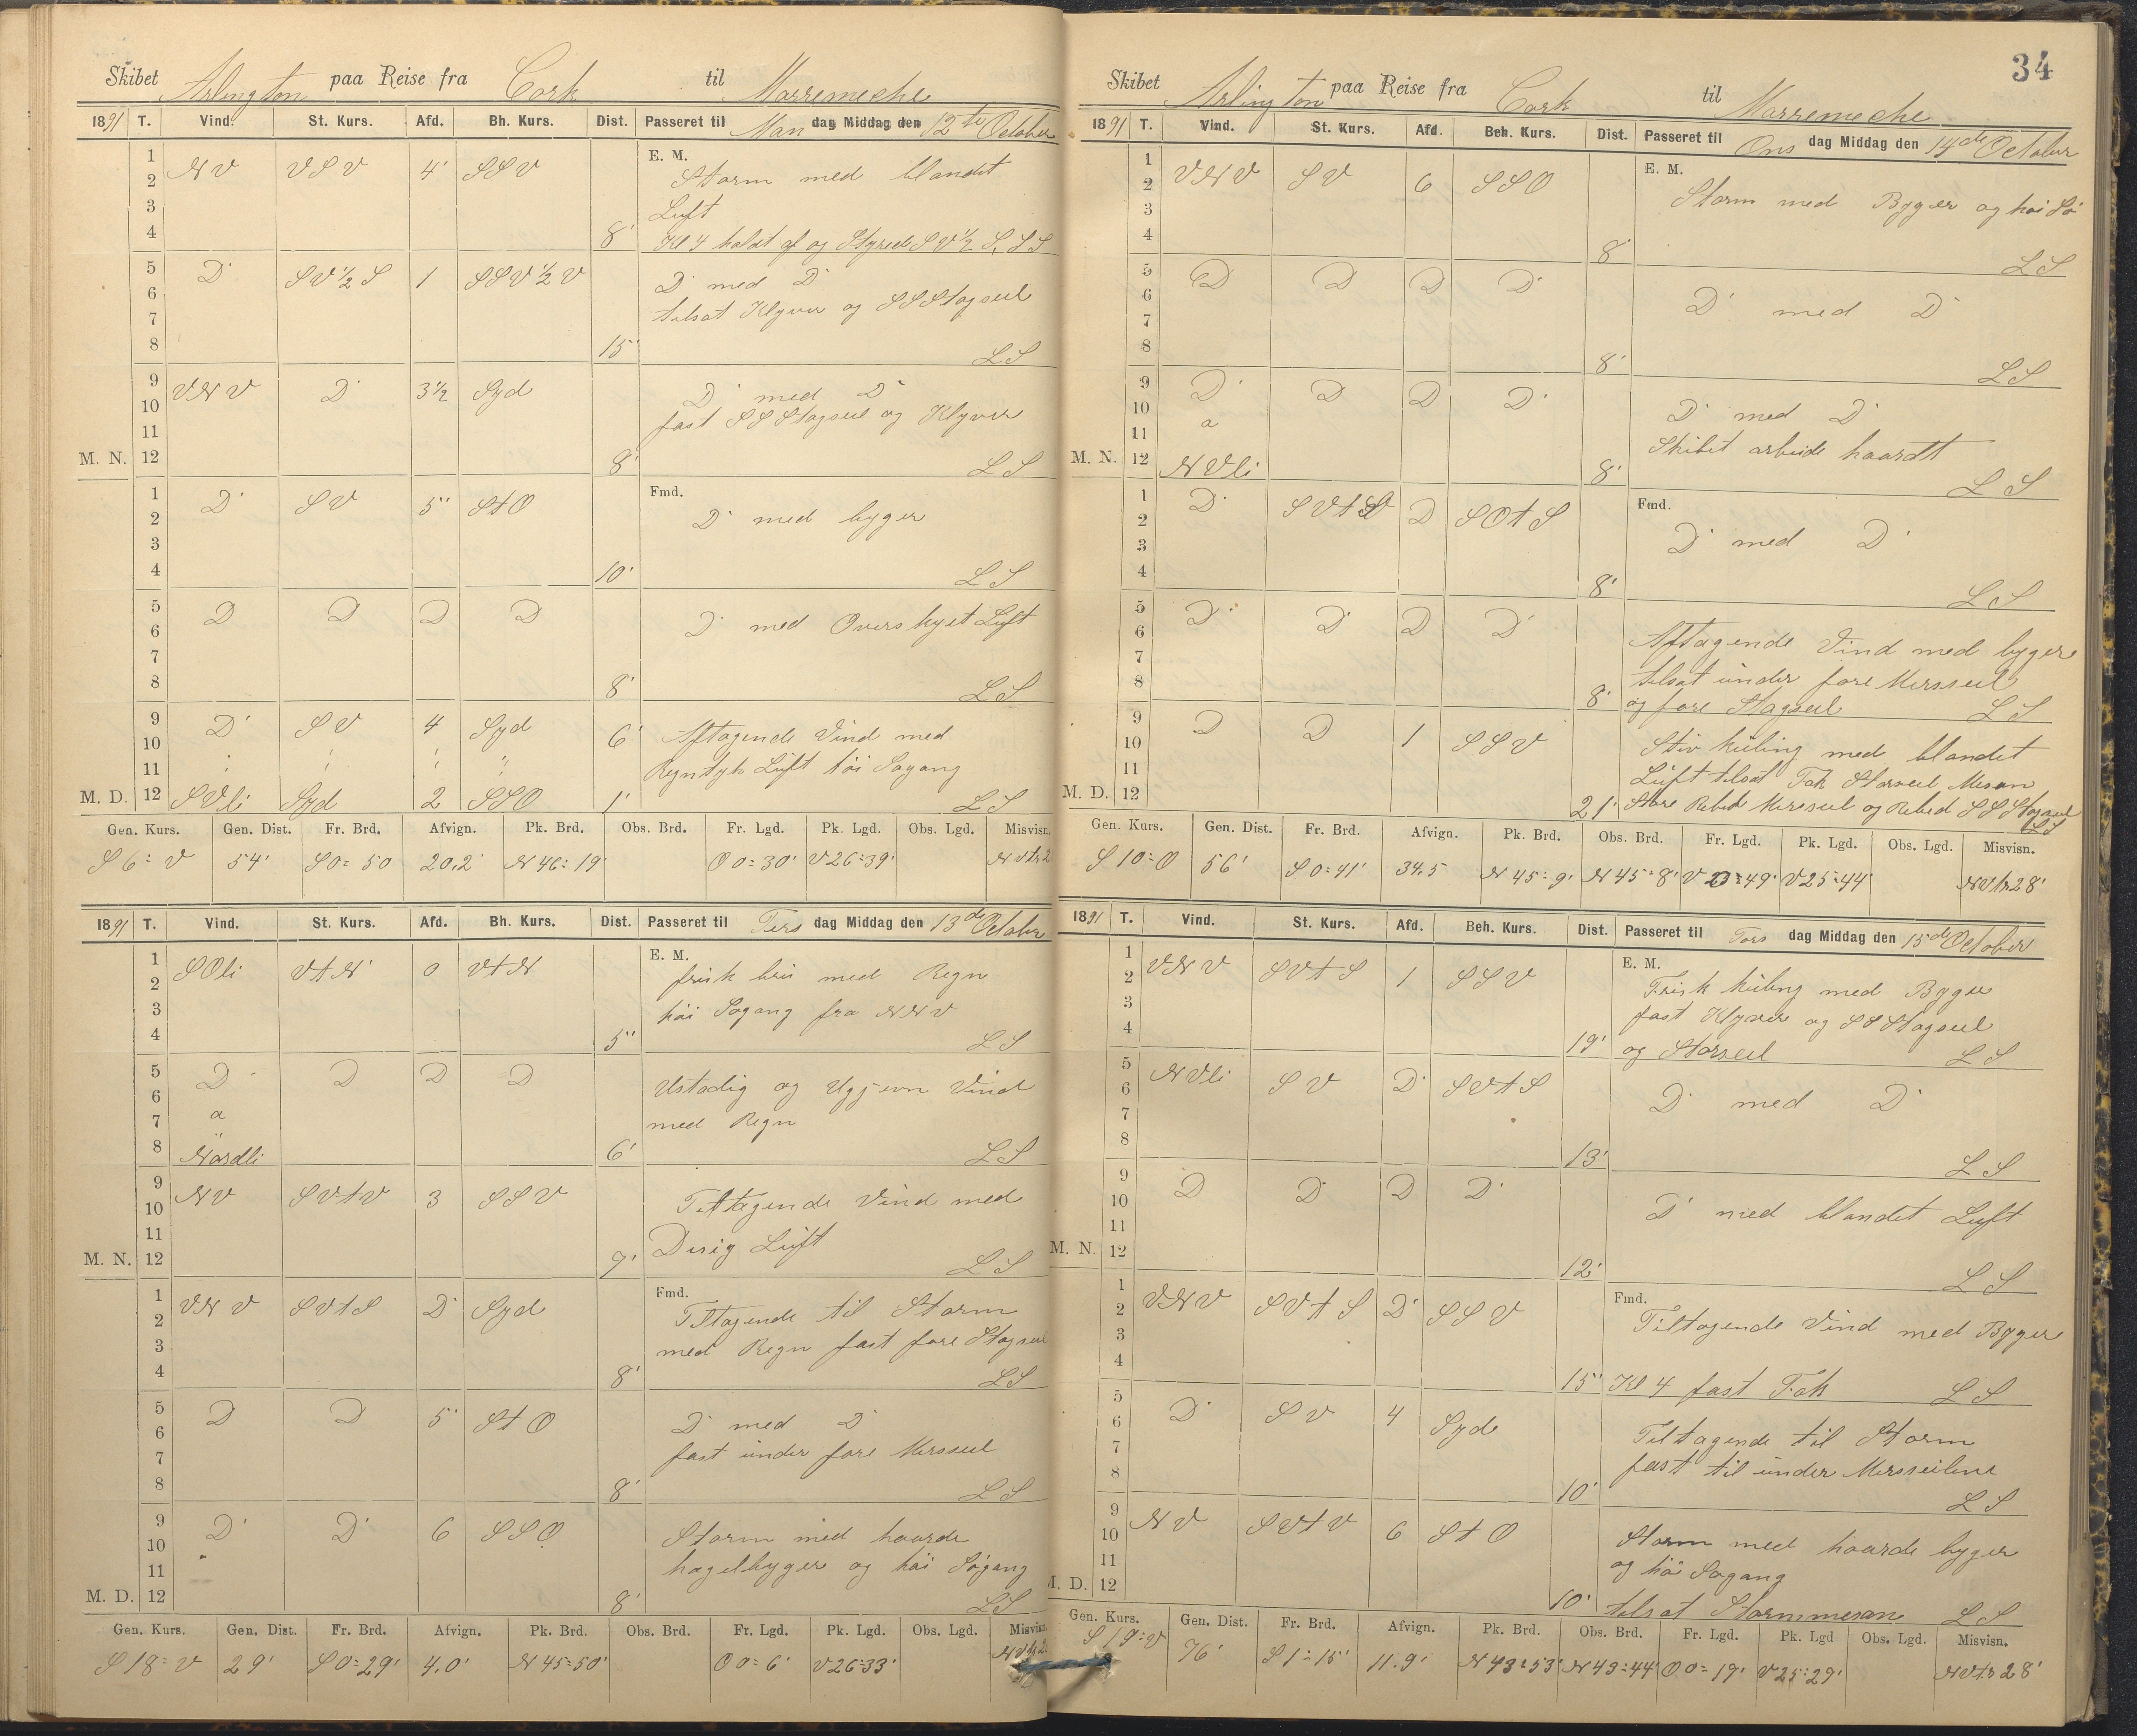 Skibet Arlington paa Reise fra Cork til Marremeche
1891 T. Vind. St. Kurs. Afd. Bh. Kurs. Dist. Passeret til Man dag Middag den 12te October
E. M.
1
2 NV VSV 4' SSV Storm med blandet
3 Luft
4 8' Kl 4 holdt af og Styred SV½ S. LS
5 D' SV½S 1 SSV½V D med D
6 tilsat Klyver og SSStagseil
7
8 15' LS
9 VNV D 3½ Syd D' med D
10 fast SSStagseil og Klyver
11
M. N. 12 8' LS
Fmd.
1 D' SV 5' StO D' med byger
2
3
4 10' LS
5 D D D D D' med Overskyet Luft
6
7
8 8' LS
9 D' SV 4 Syd 6' Aftagende Vind med
10 Regntyk Luft höi Sögang
11
M. D. 12 SVli Syd 2 SSO 1' LS
Gen. Kurs. Gen. Dist. Fr. Brd. Afvign. Pk. Brd. Obs. Brd. Fr. Lgd. Pk. Lgd. Obs. Lgd. Misvisn.
S 6° V 54' S 0° 50 20,2 N 46° 19' O 0° 30' V 26° 39'
1891 T. Vind. St. Kurs. Afd. Bh. Kurs. Dist. Passeret til Tirs dag Middag den 13de October
E. M.
1 SOli VtN 0 VtN frisk bris med Regn
2
3 höi Sögang fra NNV
4 5' LS
5 D D D D Ustadig og Ugjevn Vind
6
7 a med Regn
8 Nordli 6' LS
9 NV SVtV 3 SSV Tiltagende Vind med
10
11 Disig Luft
M. N. 12 7' LS
Fmd.
1 VNV SVtS D' Syd Tiltagende til Storm
2
3 med Regn fast fore Stagseil
4 8' LS
5 D D 5' StO D' med D
6
7 fast under fore Merseil
8 8' LS
9 D' D' 6 SSO Storm med haarde
10
11 hagelbyger og höi Sögang
M. D. 12 8' LS
Gen. Kurs. Gen. Dist. Fr. Brd. Afvign. Pk. Brd. Obs. Brd. Fr. Lgd. Pk. Lgd. Obs. Lgd. Misvisn.
S 18° V 29' S 0° 29' 4.0' N 45° 50' O 0° 6' V 26° 33'
34
Skibet Arlington paa Reise fra Cork til Marremeche
1891 T. Vind. St. Kurs. Afd. Beh. Kurs. Dist. Passeret til Ons dag Middag den 14de October
E. M.
1 VNV SV 6 SSO Storm med Byger og höi Sö
2
3
4 8' LS
5 D D D D' D' med D
6
7
8 8' LS
9 D' D D D' D' med D'
10 a
11 Skibet arbeide haardt
M. N. 12 NVli 8' LS
Fmd.
1 D' D SOtS D' med D'
2
3
4 8' LS
5 D' D' D D' Aftagende Vind med byger
6
7 tilsat under fore Merseil
8 8' og fore Stagseil LS
9 D D 1 SSV Stiv Kuling med blandet
10
11 Luft tilsat Fok Storseil Mesan
M. D. 12 21' Store Rebed Merseil og Rebed SSStagseil
LS
Gen. Kurs. Gen. Dist. Fr. Brd. Afvign. Pk. Brd. Obs. Brd. Fr. Lgd. Pk. Lgd. Obs. Lgd. Misvisn.
S 10° O 56' S 0° 41' 34.5 N 45° 9' N 45° 8' V 25° 44' NVtN 28'
1891 T. Vind. St. Kurs. Afd. Beh. Kurs. Dist. Passeret til Tors dag Middag den 15de October
E. M.
1 VNV SVtS 1 SSV Frisk Kuling med Byger
2
3 fast Klyver og SSStagseil
4 19' og Storseil LS
5 NVli SV D' SVtS D' med D'
6
7
8 13' LS
9 D D' D D' D' med blandet Luft
10
11
M. N. 12 12' LS
Fmd.
1 VNV SVtS D' SSV Tiltagende Vind med Byger
2
3
4 15' Kl 4 fast Fok LS
5 D' SV 4 Syd Tiltagende til Storm
6
7 fast til under Merseilene
8 10' LS
9 NV SVtV 6 StO Storm med haarde byger
10
11 og höi Sögang
M. D. 12 10' tilsat Stormmesan LS
Gen. Kurs. Gen. Dist. Fr. Brd. Afvign. Pk. Brd. Obs. Brd. Fr. Lgd. Pk. Lgd Obs. Lgd. Misvisn.
S 19° V 76' S 1° 15' 11.9' N 43° 53' N 43° 44' O 0° 19' V 25° 29' NVtN 28'